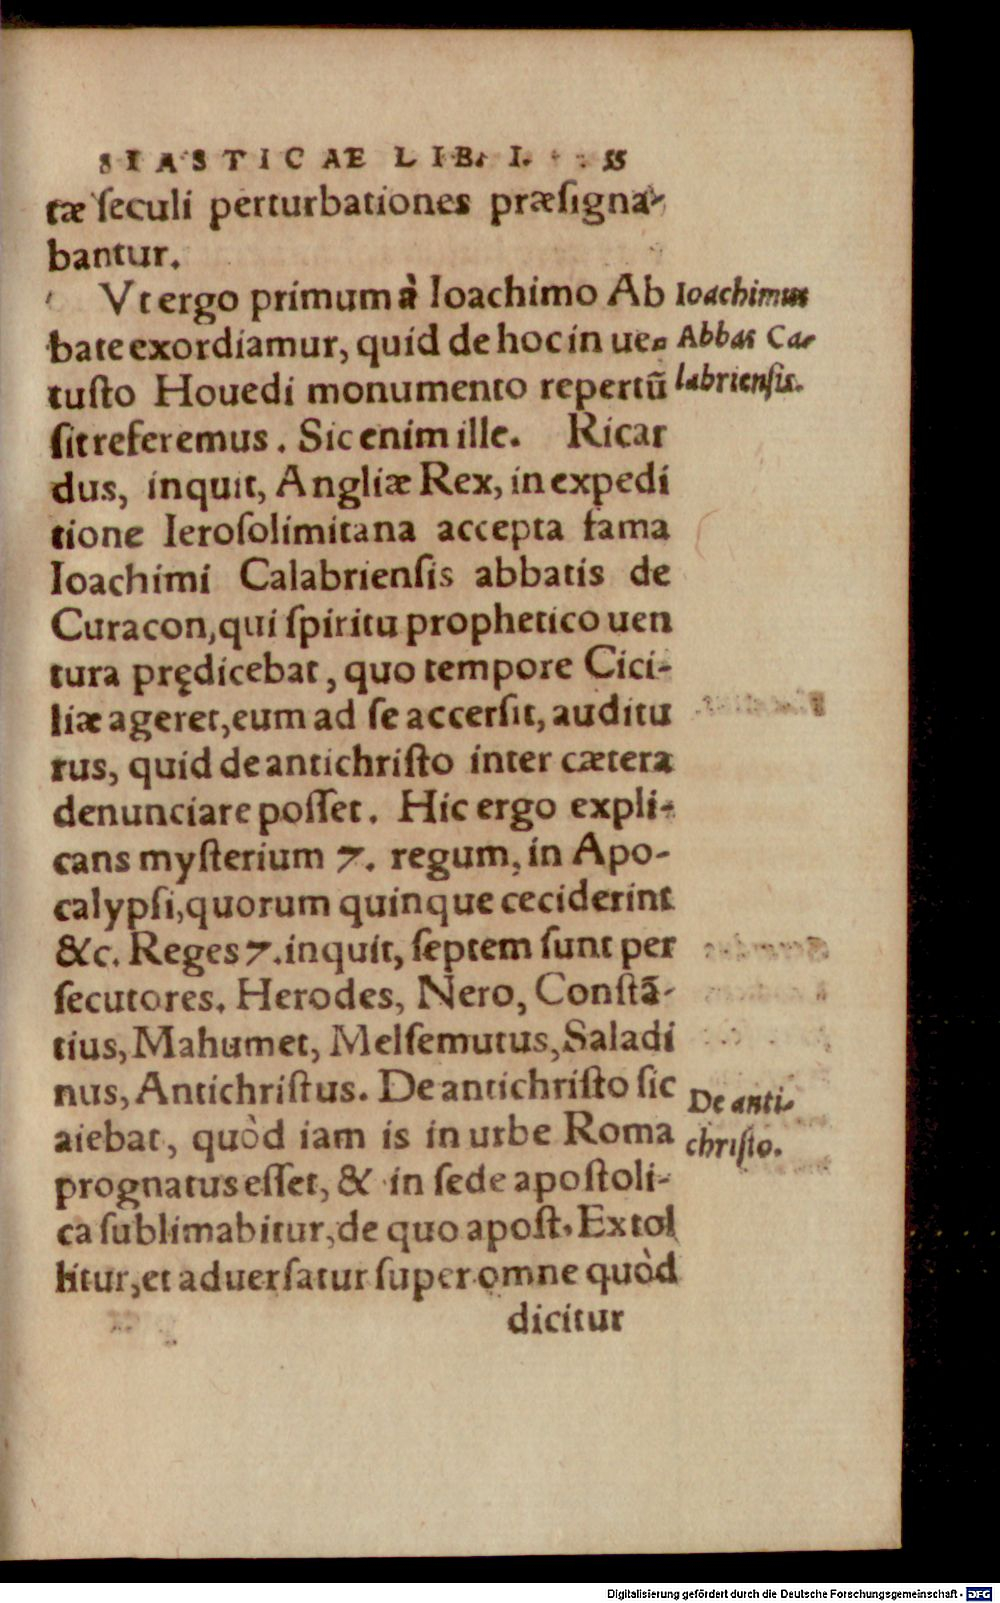 SIASTICAE LIB. I. 55
tæ ſeculi perturbationes præſigna-
bantur.
Vt ergo primum à Ioachimo Ab
bate exordiamur, quid de hoc in ue-
tuſto Houedi monumento repertũ
ſit referemus. Sic enim ille. Ricar
dus, inquit, Angliæ Rex, in expedi
tione Ieroſolimitana accepta fama
Ioachimi Calabrienſis abbatis de
Curacon, qui ſpiritu prophetico uen
tura prędicebat, quo tempore Cici-
liæ ageret, eum ad ſe accerſit, auditu
rus, quid de antichriſto inter cætera
denunciare poſſet. Hic ergo expli-
cans myſterium 7. regum, in Apo-
calypſi, quorum quinque ceciderint
&c. Reges 7. inquit, ſeptem ſunt per
ſecutores. Herodes, Nero, Conſtã-
tius, Mahumet, Melſemutus, Saladi
nus, Antichriſtus. De antichriſto ſic
aiebat, quòd iam is in urbe Roma
prognatus eſſet, & in ſede apoſtoli-
ca ſublimabitur, de quo apoſt. Extol
litur, et aduerſatur ſuper omne quòd
dicitur
Ioachimus
Abbas Ca-
labrienſis.
De anti-
chriſto.
Digitalisierung gefördert durch die Deutsche Forschungsgemeinschaft - DFG